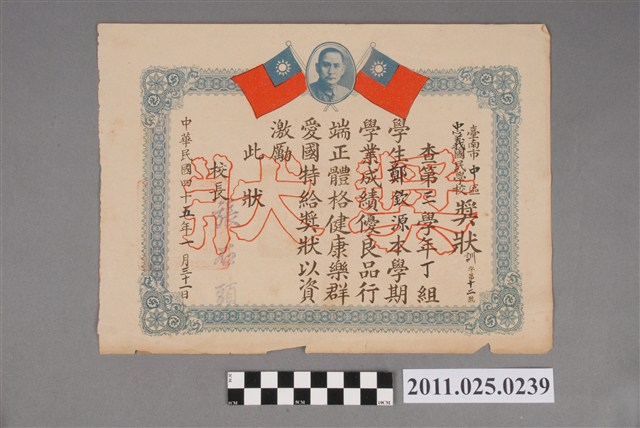 臺南市中區
忠義國民學校
獎狀
訓字第十二號
查第三學年丁組
學生鄭欽源本學期
學業成績優良品行
端正體格健康樂群
愛國特給獎狀以資
激勵
此狀
校長
中華民國四十五年一月三十一日
獎狀
2011.025.0239